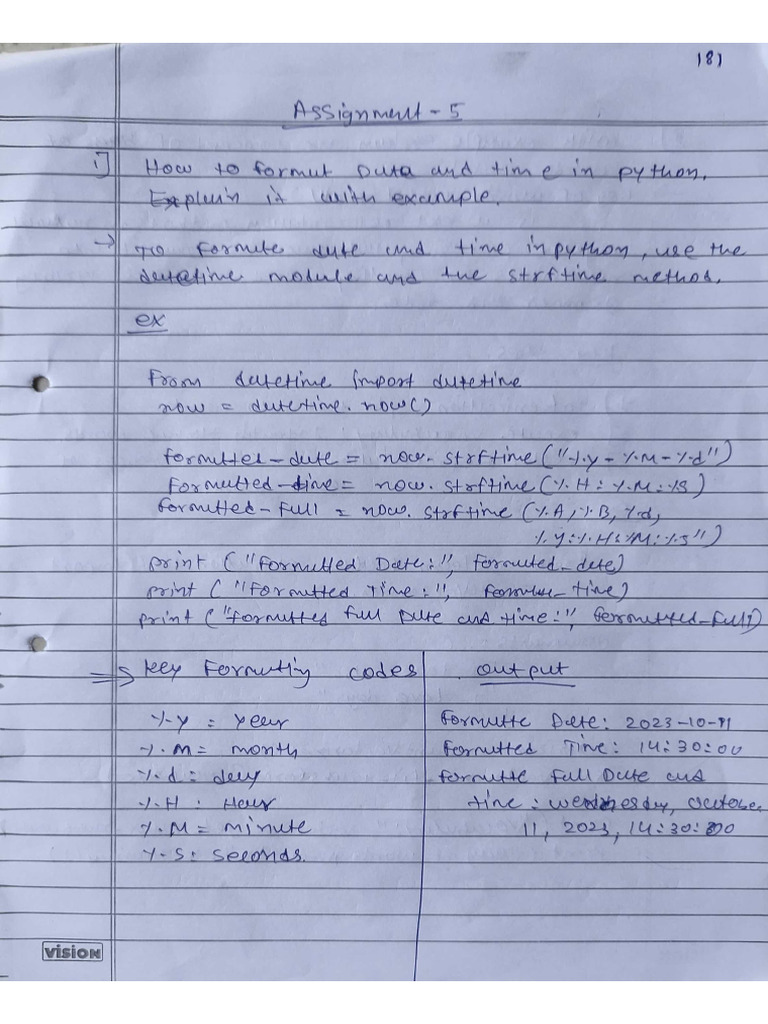 181
Assignment - 5
1] How to format Data and time in python.
Explain it with example.
→ To formate date and time in python, use the
datetime module and the strftime method.
ex
From datetime import datetime
now = datetime.now()
formatted-date = now.strftime("%y-%M-%d")
formatted-time = now.strftime(%H:%M:%S)
formatted-full = now.strftime(%A, %B, %d,
%y:%H:%M:%S")
print ("formatted Date:", formatted_date)
print ("Formatted Time:", _time)
print ("formatted full Date and time:", formatted_full)
=> key Formatting codes
%y = year
%.m = month
%.d = day
%.H = Hour
%.M = minute
%.S = seconds.
output
formatte Date: 2023-10-11
formatted Time: 14:30:00
formatte full Date and
time: wednesday, October
11, 2023, 14:30:00
vision